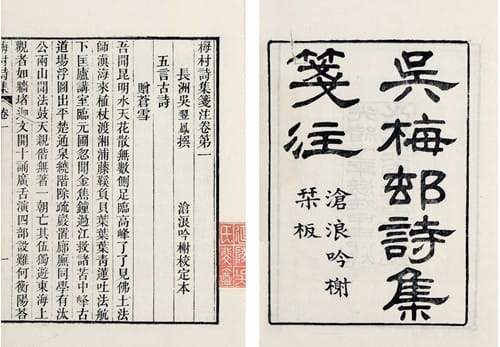 吳梅邨詩集
箋注
滄浪吟榭
栞板
梅村詩集箋注卷第一
長洲吳翌鳳撰　滄浪吟榭校定本
五言古詩
贈蒼雪
吾聞昆明水天花散無數側足臨高峰了了見佛土法
師滇海來植杖渡湘浦藤鞵負貝葉葉葉青蓮吐法航
下匡廬講室臨元圃忽聞金焦鐘過江救諸苦中峰古
道場浮圖出平楚通泉繞階除疏巖置廊廡同學有汰
公兩山聞法鼓天親偕無著一朝亡其伍獨遊東海上
觀者如牆堵迦文開十誦廣舌演四部設難何衡陽答
梅村詩集 卷一